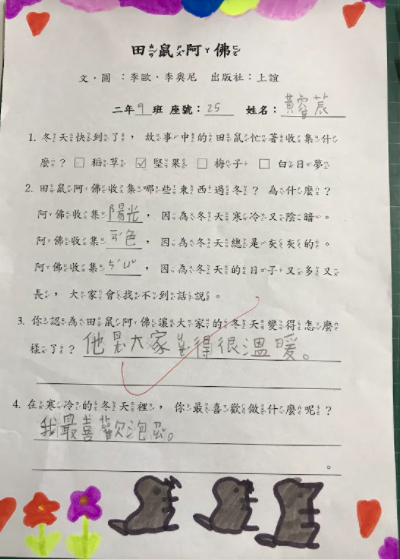 田鼠阿佛
文·圖：李歐·李奧尼 出版社：上誼
二年9班 座號：25 姓名：黃睿宸
1. 冬天快到了，故事中的田鼠忙著收集什
麼？□稻草☑堅果□梅子□白日夢
2. 田鼠阿佛收集哪些東西過冬？為什麼？
阿佛收集陽光，因為冬天寒冷又陰暗。
阿佛收集ㄧㄢˊ色，因為冬天總是灰灰的。
阿佛收集ㄗˋㄩˇ，因為冬天的日子又多又
長，大家會找不到話說。
3. 你認為田鼠阿佛讓大家的冬天變得怎麼
樣了？他是大家 得很溫暖。
4. 在寒冷的冬天裡，你最喜歡做什麼呢？
我最喜歡泡 。
。